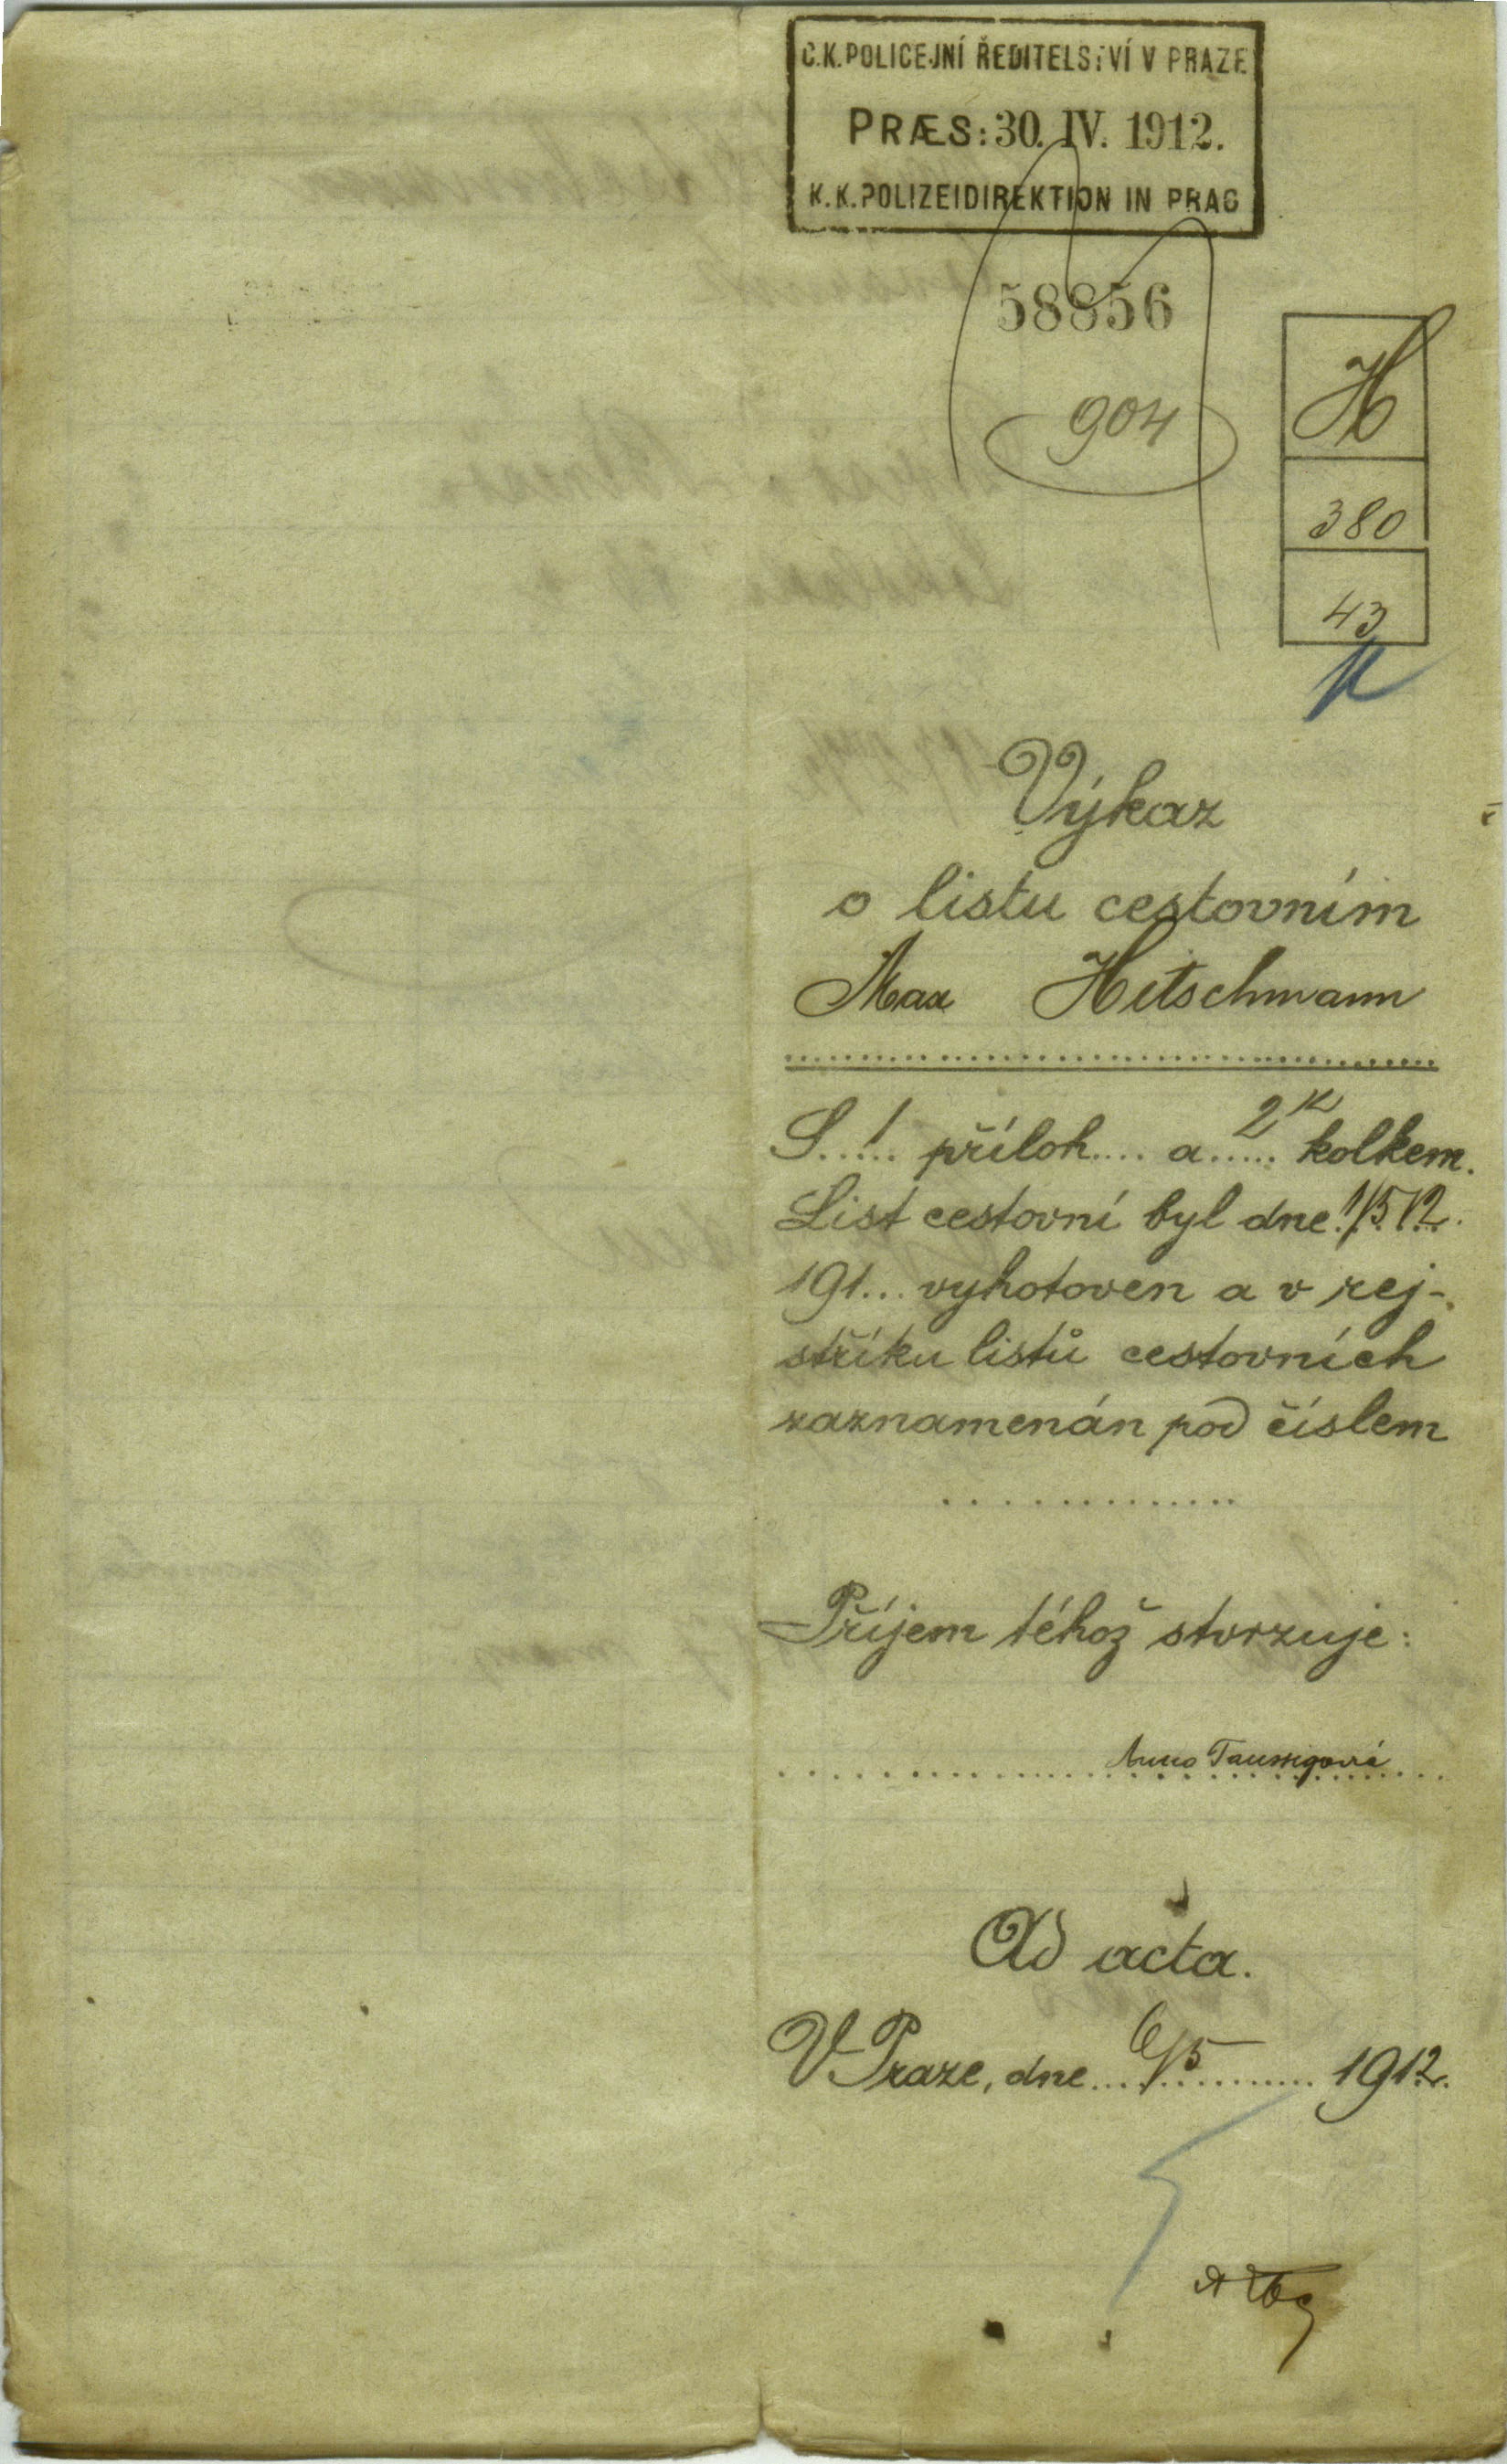 C.K. POLICEJNÍ ŘEDITELSTVÍ V PRAZE
PRÆS: 30. IV. 1912.
K.K. POLIZEIDIREKTION IN PRAG
58856
904
H
380
43
Výkaz
o listu cestovním
Max Hitschmann
S..1.. příloh.... a 2K kolkem.
List cestovní byl dne 1/5 12.
191... vyhotoven a v rej-
stříku listů cestovních
zaznamenán pod číslem
..............
Příjem téhož stvrzuje:
Anna Taussigová
Ad acta.
V Praze, dne 6/5 1912.